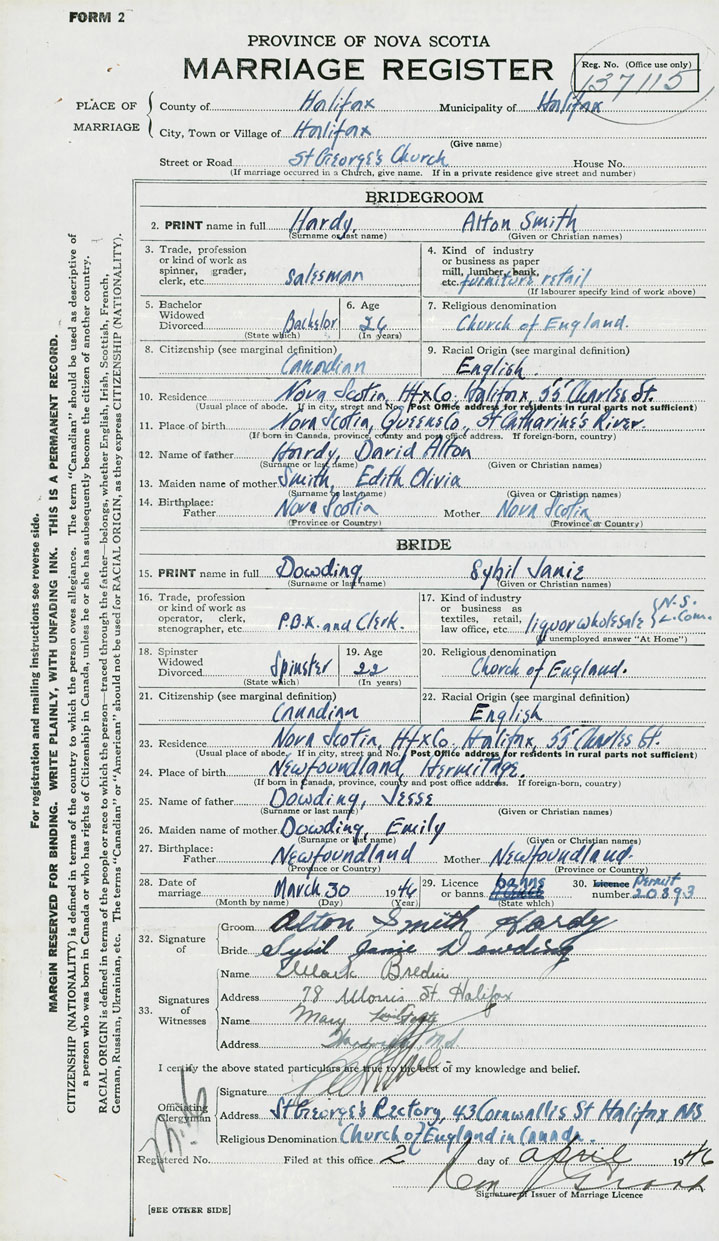 FORM 2
PROVINCE OF NOVA SCOTIA
MARRIAGE REGISTER
Reg. No. (Office use only)
137115
PLACE OF MARRIAGE
County of Halifax Municipality of Halifax
City, Town or Village of Halifax
(Give name)
Street or Road St George's Church House No.
(If marriage occurred in a Church, give name. If in a private residence give street and number)
BRIDEGROOM
2. PRINT name in full Hardy, Alton Smith
(Surname or last name) (Given or Christian names)
3. Trade, profession or kind of work as spinner, grader, clerk, etc. salesman
4. Kind of industry or business as paper mill, lumber, bank, etc. furniture retail
(If labourer specify kind of work above)
5. Bachelor Widowed Divorced Bachelor
(State which)
6. Age 26
(In years)
7. Religious denomination
Church of England.
8. Citizenship (see marginal definition)
Canadian
9. Racial Origin (see marginal definition)
English.
10. Residence Nova Scotia, Hfx Co, Halifax, 55 Charles St.
(Usual place of abode. If in city, street and No. Post Office address for residents in rural parts not sufficient)
11. Place of birth Nova Scotia, Queens Co, St Catharine's River.
(If born in Canada, province, county and post office address. If foreign-born, country)
12. Name of father Hardy, David Alton
(Surname or last name) (Given or Christian names)
13. Maiden name of mother Smith, Edith Olivia
(Surname or last name) (Given or Christian names)
14. Birthplace:
Father Nova Scotia Mother Nova Scotia
(Province or Country) (Province or Country)
BRIDE
15. PRINT name in full Dowding, Sybil Janie
(Surname or last name) (Given or Christian names)
16. Trade, profession or kind of work as operator, clerk, stenographer, etc P.B.X. and Clerk.
17. Kind of industry or business as textiles, retail, law office, etc. liquor wholesale { N.S. L. Com.
(If unemployed answer "At Home")
18. Spinster Widowed Divorced Spinster
(State which)
19. Age 22
(In years)
20. Religious denomination
Church of England.
21. Citizenship (see marginal definition)
Canadian
22. Racial Origin (see marginal definition)
English
23. Residence Nova Scotia, Hfx Co, Halifax, 55 Charles St.
(Usual place of abode. If in city, street and No. Post Office address for residents in rural parts not sufficient)
24. Place of birth Newfoundland, Hermitage.
(If born in Canada, province, county and post office address. If foreign-born, country)
25. Name of father Dowding, Jesse
(Surname or last name) (Given or Christian names)
26. Maiden name of mother Dowding, Emily
(Surname or last name) (Given or Christian names)
27. Birthplace:
Father Newfoundland Mother Newfoundland.
(Province or Country) (Province or Country)
28. Date of marriage March 30 1946
(Month by name) (Day) (Year)
29. Licence or banns banns
(State which)
30. Licence Permit number 20893
32. Signature of
Groom Alton Smith Hardy
Bride Sybil Janie Dowding
33. Signatures of Witnesses
Name Mark Bredin
Address 78 Morris St. Halifax
Name Mary
Address
I certify the above stated particulars are true to the best of my knowledge and belief.
Officiating Clergyman
Signature
Address St George's Rectory, 43 Cornwallis St Halifax NS
Religious Denomination Church of England in Canada.
Registered No. Filed at this office 2 day of April 1946
Signature of Issuer of Marriage Licence
[SEE OTHER SIDE]
For registration and mailing instructions see reverse side.
MARGIN RESERVED FOR BINDING. WRITE PLAINLY, WITH UNFADING INK. THIS IS A PERMANENT RECORD.
CITIZENSHIP (NATIONALITY) is defined in terms of the country to which the person owes allegiance. The term "Canadian" should be used as descriptive of
a person who was born in Canada or who has rights of Citizenship in Canada, unless he or she has subsequently become the citizen of another country.
RACIAL ORIGIN is defined in terms of the people or race to which the person—traced through the father—belongs, whether English, Irish, Scottish, French,
German, Russian, Ukrainian, etc. The terms "Canadian" or "American" should not be used for RACIAL ORIGIN, as they express CITIZENSHIP (NATIONALITY).